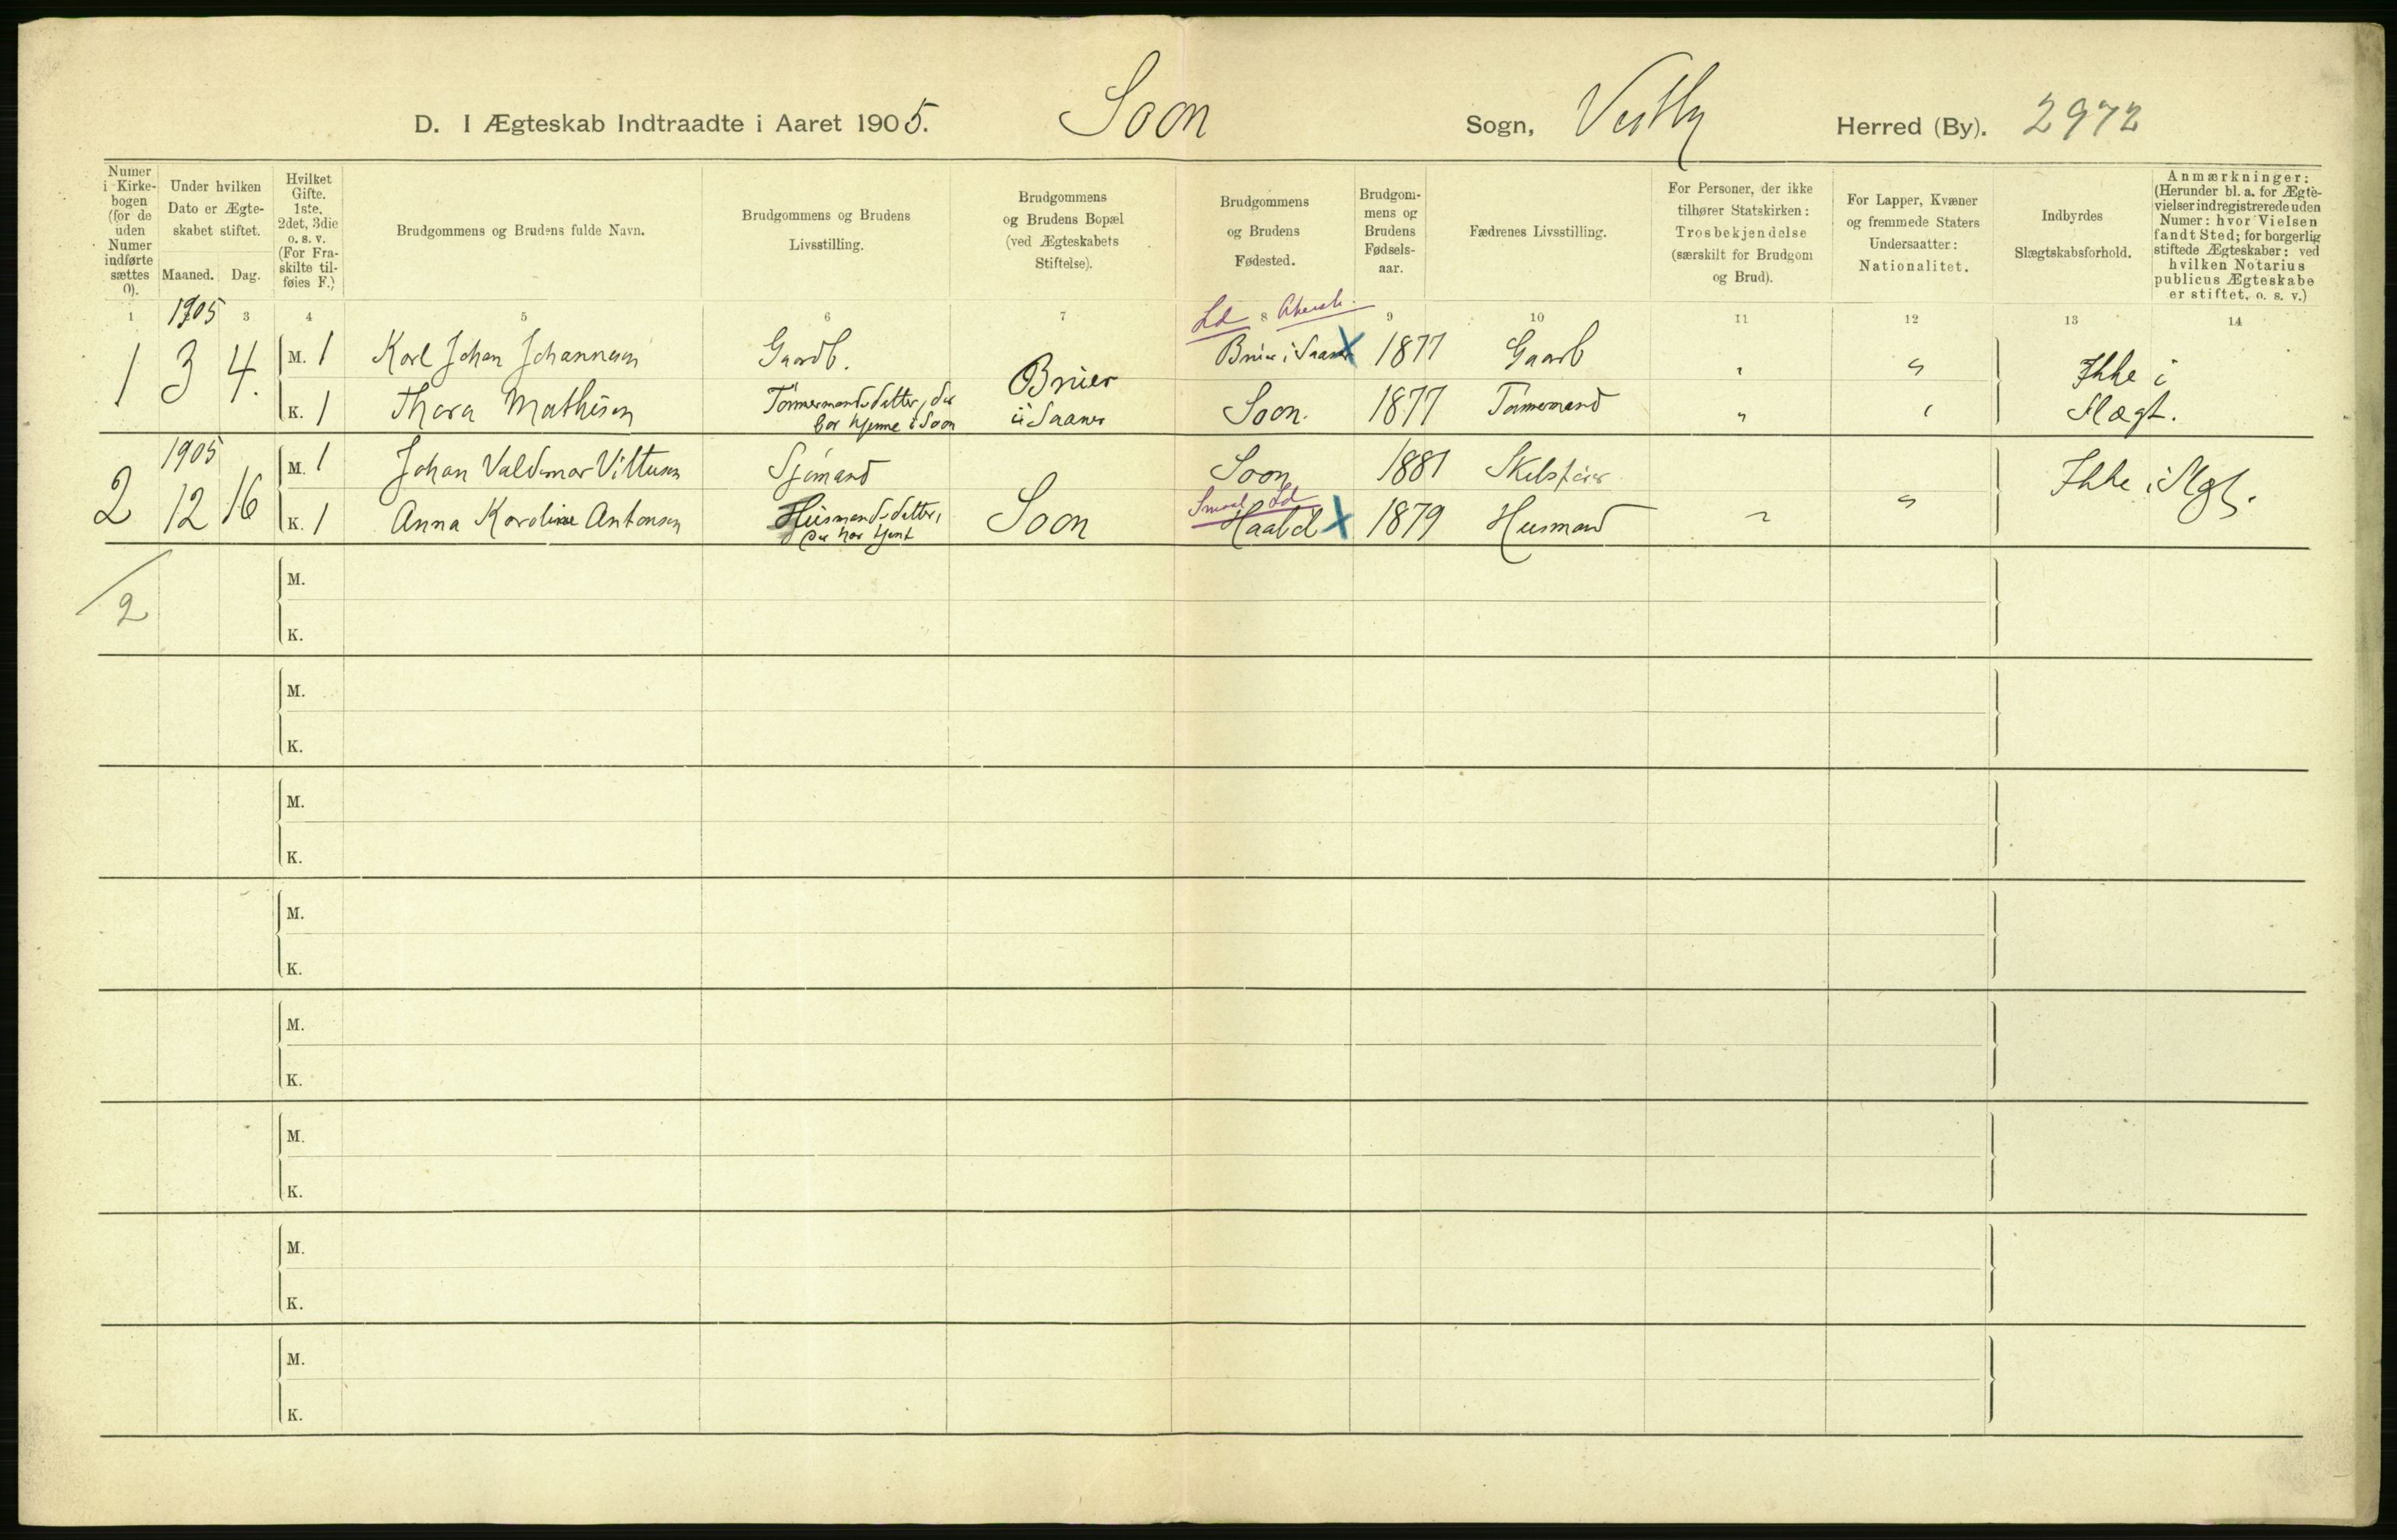 D. I Ægteskab Indtraadte i Aaret 1905. Soon Sogn, Vestby Herred (By). 2972
Numer i Kirke-bogen (for de uden Numer indførte sættes 0).
Under hvilken Dato er Ægte-skabet stiftet.
Maaned. Dag.
Hvilket Gifte. 1ste, 2det, 3die o. s. v. (For Fra-skilte til-føies F.)
Brudgommens og Brudens fulde Navn.
Brudgommens og Brudens Livsstilling.
Brudgommens og Brudens Bopæl (ved Ægteskabets Stiftelse).
Brudgommens og Brudens Fødested.
Brudgom-mens og Brudens Fødsels-aar.
Fædrenes Livsstilling.
For Personer, der ikke tilhører Statskirken: Trosbekjendelse (særskilt for Brudgom og Brud).
For Lapper, Kvæner og fremmede Staters Undersaatter: Nationalitet.
Indbyrdes Slægtskabsforhold.
Anmærkninger: (Herunder bl. a. for Ægte-vielser indregistrerede uden Numer: hvor Vielsen fandt Sted; for borgerlig stiftede Ægteskaber: ved hvilken Notarius publicus Ægteskabe er stiftet, o. s. v.)
1 1905 3 4 5 6 7 8 9 10 11 12 13 14
Ld
1 3 4. M. 1 Karl Johan Johannesen Gaardb. Brüer i Saaner X 1877 Gaardb " "
K. 1 Thora Mathisen Tømmermandsdatter, der bor hjemme i Soon Brüer i Saaner Soon. 1877 Tømmermand " " Ikke i Slægt.
1905
2 12 16 M. 1 Johan Valdemar Sjømand Soon 1881 "
Smaal Ld
K. 1 Anna Karoline Antonsen Husmandsdatter, der har tjent Soon Haabøl X 1879 Husmand " " Ikke i Slgt.
/2
M.
K.
M.
K.
M.
K.
M.
K.
M.
K.
M.
K.
M.
K.
M.
K.